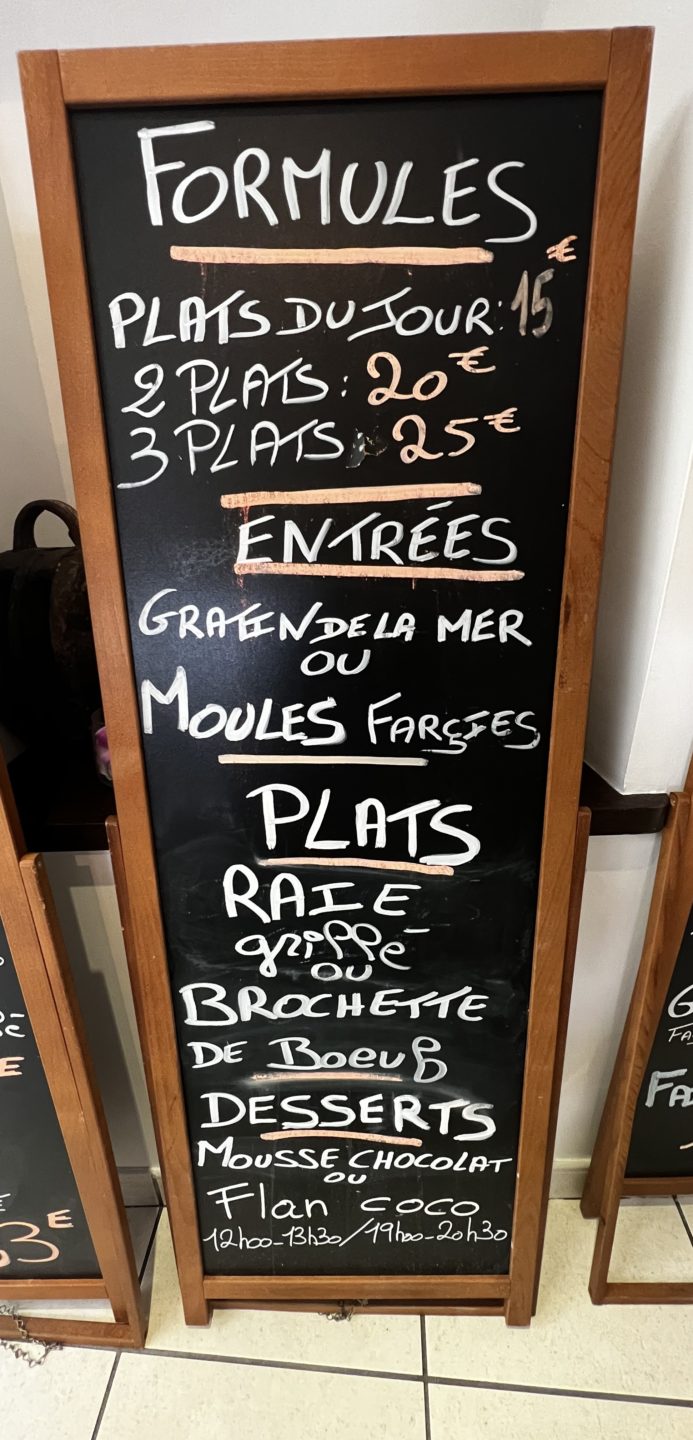 FORMULES
PLATS DU JOUR: 15€
2 PLATS: 20€
3 PLATS: 25€
ENTRÉES
GRATIN DE LA MER
OU
MOULES FARÇIES
PLATS
RAIE
griffé
OU
BROCHETTE
DE Boeuf
DESSERTS
MOUSSE CHOCOLAT
OU
Flan coco
12h00-13h30/19h00-20h30
3€